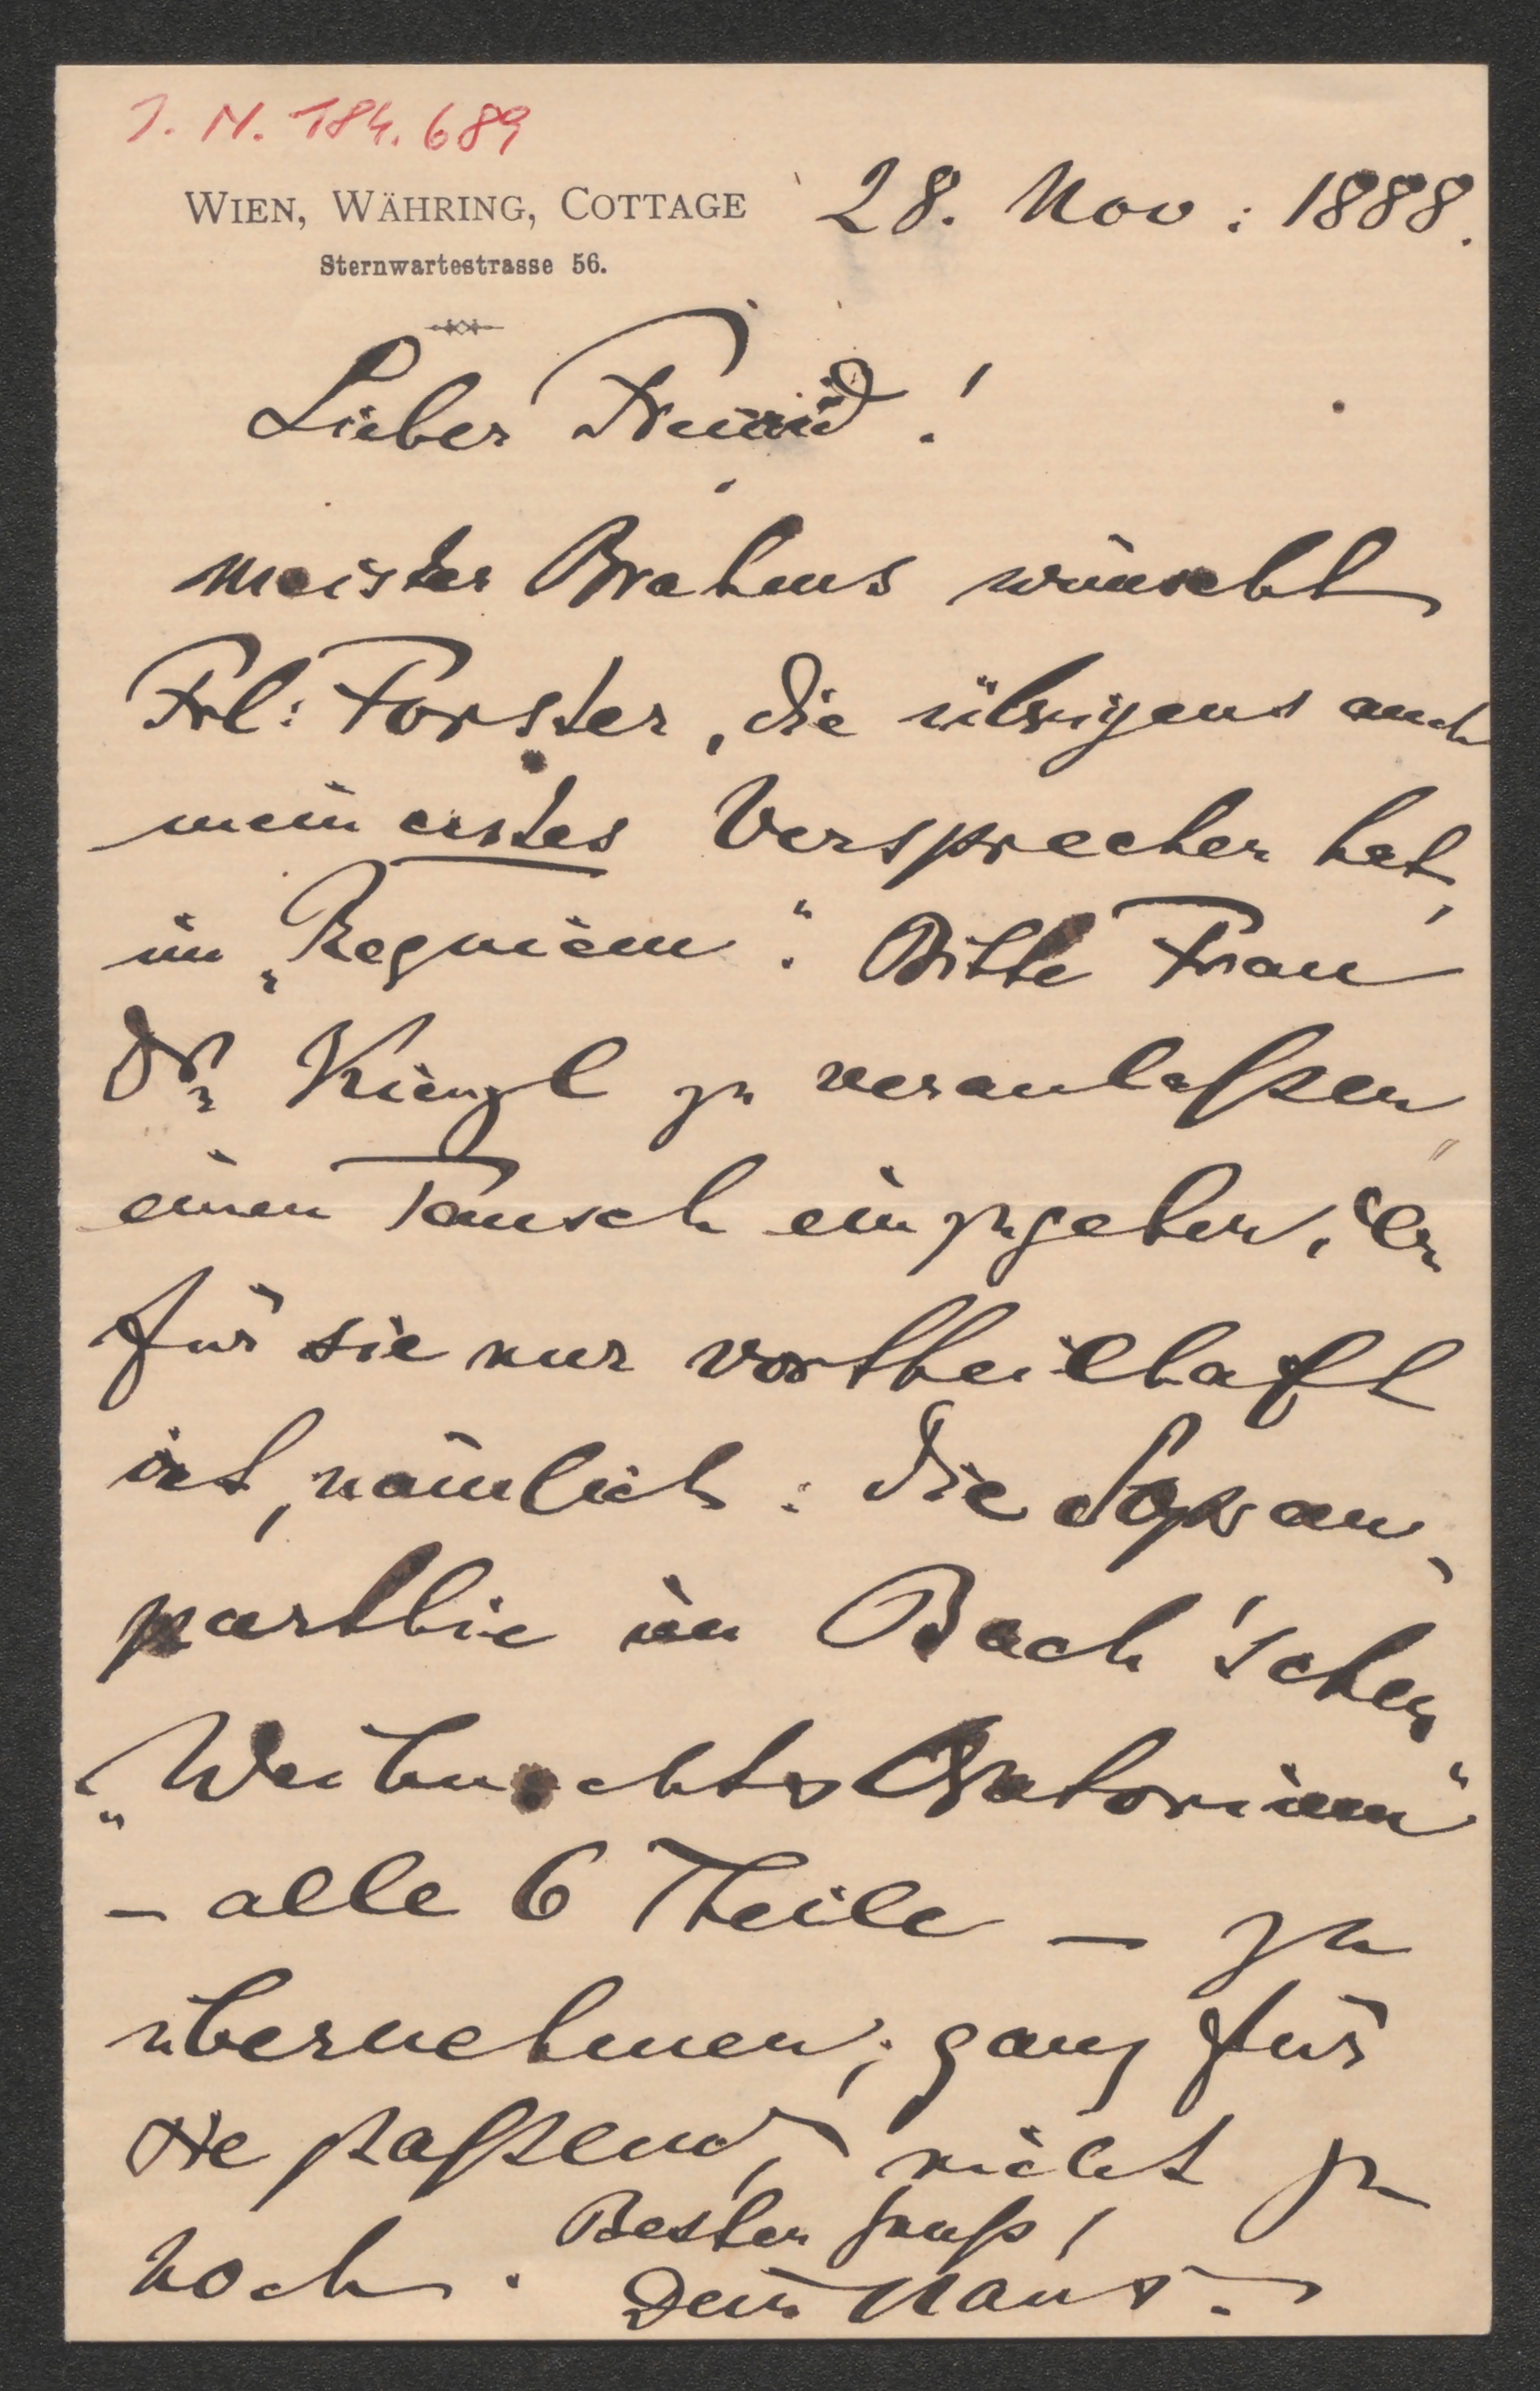 I. N. 184.689
WIEN, WÄHRING, COTTAGE 28. Nov: 1888.
Sternwartestrasse 56.
Lieber Freund!
Meister Brahms wünscht
Frl: Forster, die übrigens auch
mein erstes Versprechen hat,
im „Requiem“. Bitte Frau
Dr Kienzl zu veranlaßen,
einen Tausch einzugehen, der
für sie nur vortheilhaft
ist, nämlich: die Sopran-
parthie im Bach'schen
„Weihnachts Oratorium“
– alle 6 Theile – zu
übernehmen; ganz für
sie paßend, nicht zu
hoch. Besten Gruß!
Dein Hans.